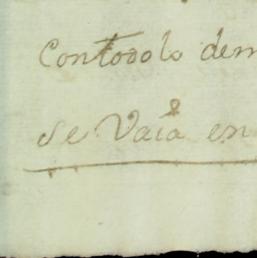 Contodolo dem
se Vaia en